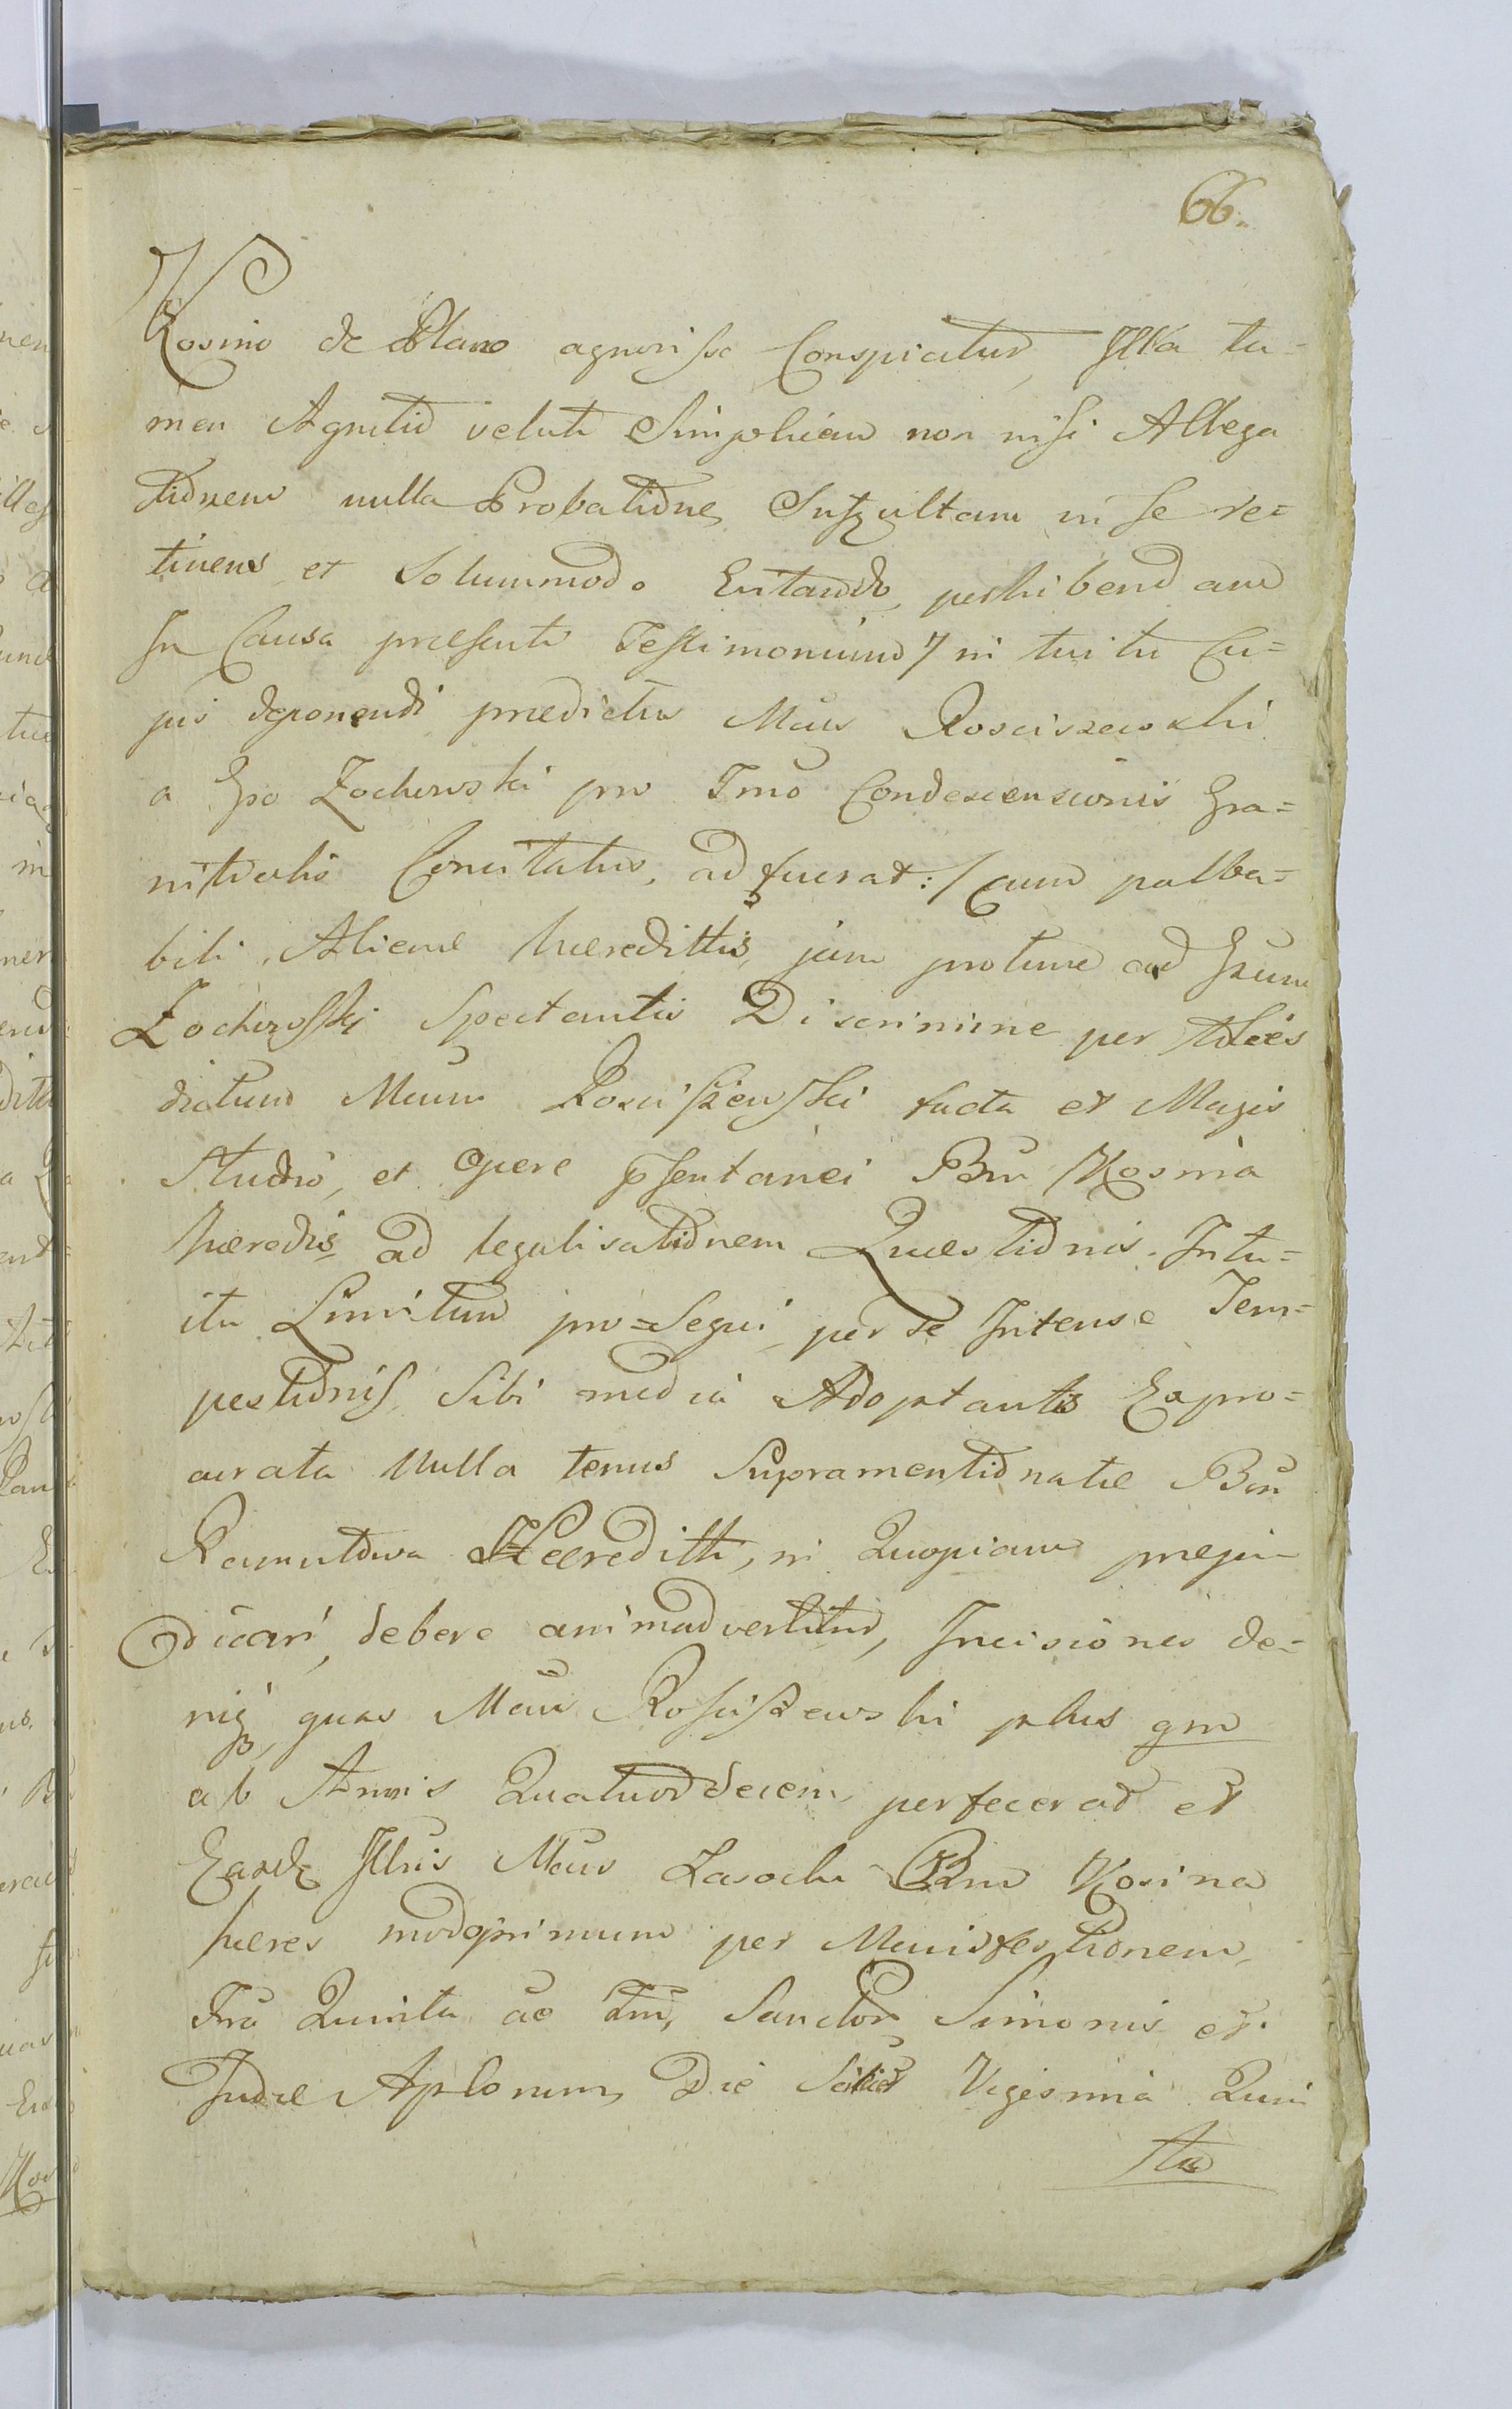 66.
Kosino de Plano agnovisse Conspicitur, Illa ta=
men Agnitio veluti Simplicem non nisi Allega
tionem nulla Probatione Suffultam in se re=
tinens et Solummodo Evitando perhibendam
In Causa præsenti Testimonium / in tuitu Cu=
jus deponendi prædictus Mcus Rosciszewski
a Gso Zochowski pro Tmo Condescensionis Gra=
nitialis Concitatus, ad fuerat: / cum palba=
bili Alienæ hæredittis, jam protunc ad Gsum
Zochowski Spectantis Discrimine per
dictum Mcum Rosciszewski facta et Magis
Studio, et opere psentanei Bnr Kosina
hæredis ad legalisationem Quæstionis Intu=
itu Limitum pro=Sequi per se Intensæ Tem=
pestionis Sibi media Adoptantis Expro=
curata Nulla tenus Supramentionatæ Bon
Ramutowa Hæreditti, in Quopiam præju=
dicari, debere animadvertitur, Incisiones de=
niq, quas Mcus Rosciszewski plus qm
ab Annis Quatuordecem perfecerat et
Easdq Illris Mcus Lasocki Bnr Kosina
hæres modoprimum per Manifestionem,
Fria Quinta ae Fm, Sanctor Simonis et
Judæ Aplorum, Die Scilicet Vigesima Quin
ta